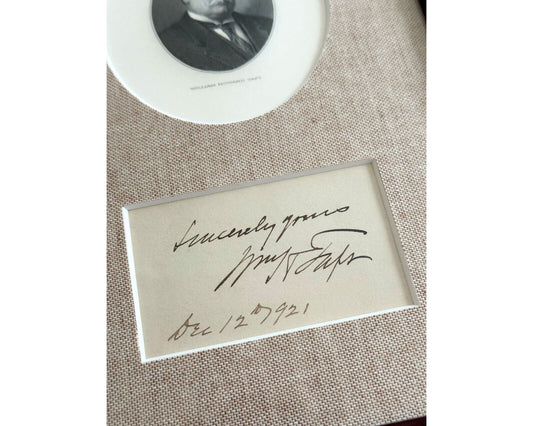 WILLIAM HOWARD TAFT
Sincerely yours
Wm H Taft
Dec 12th 1921